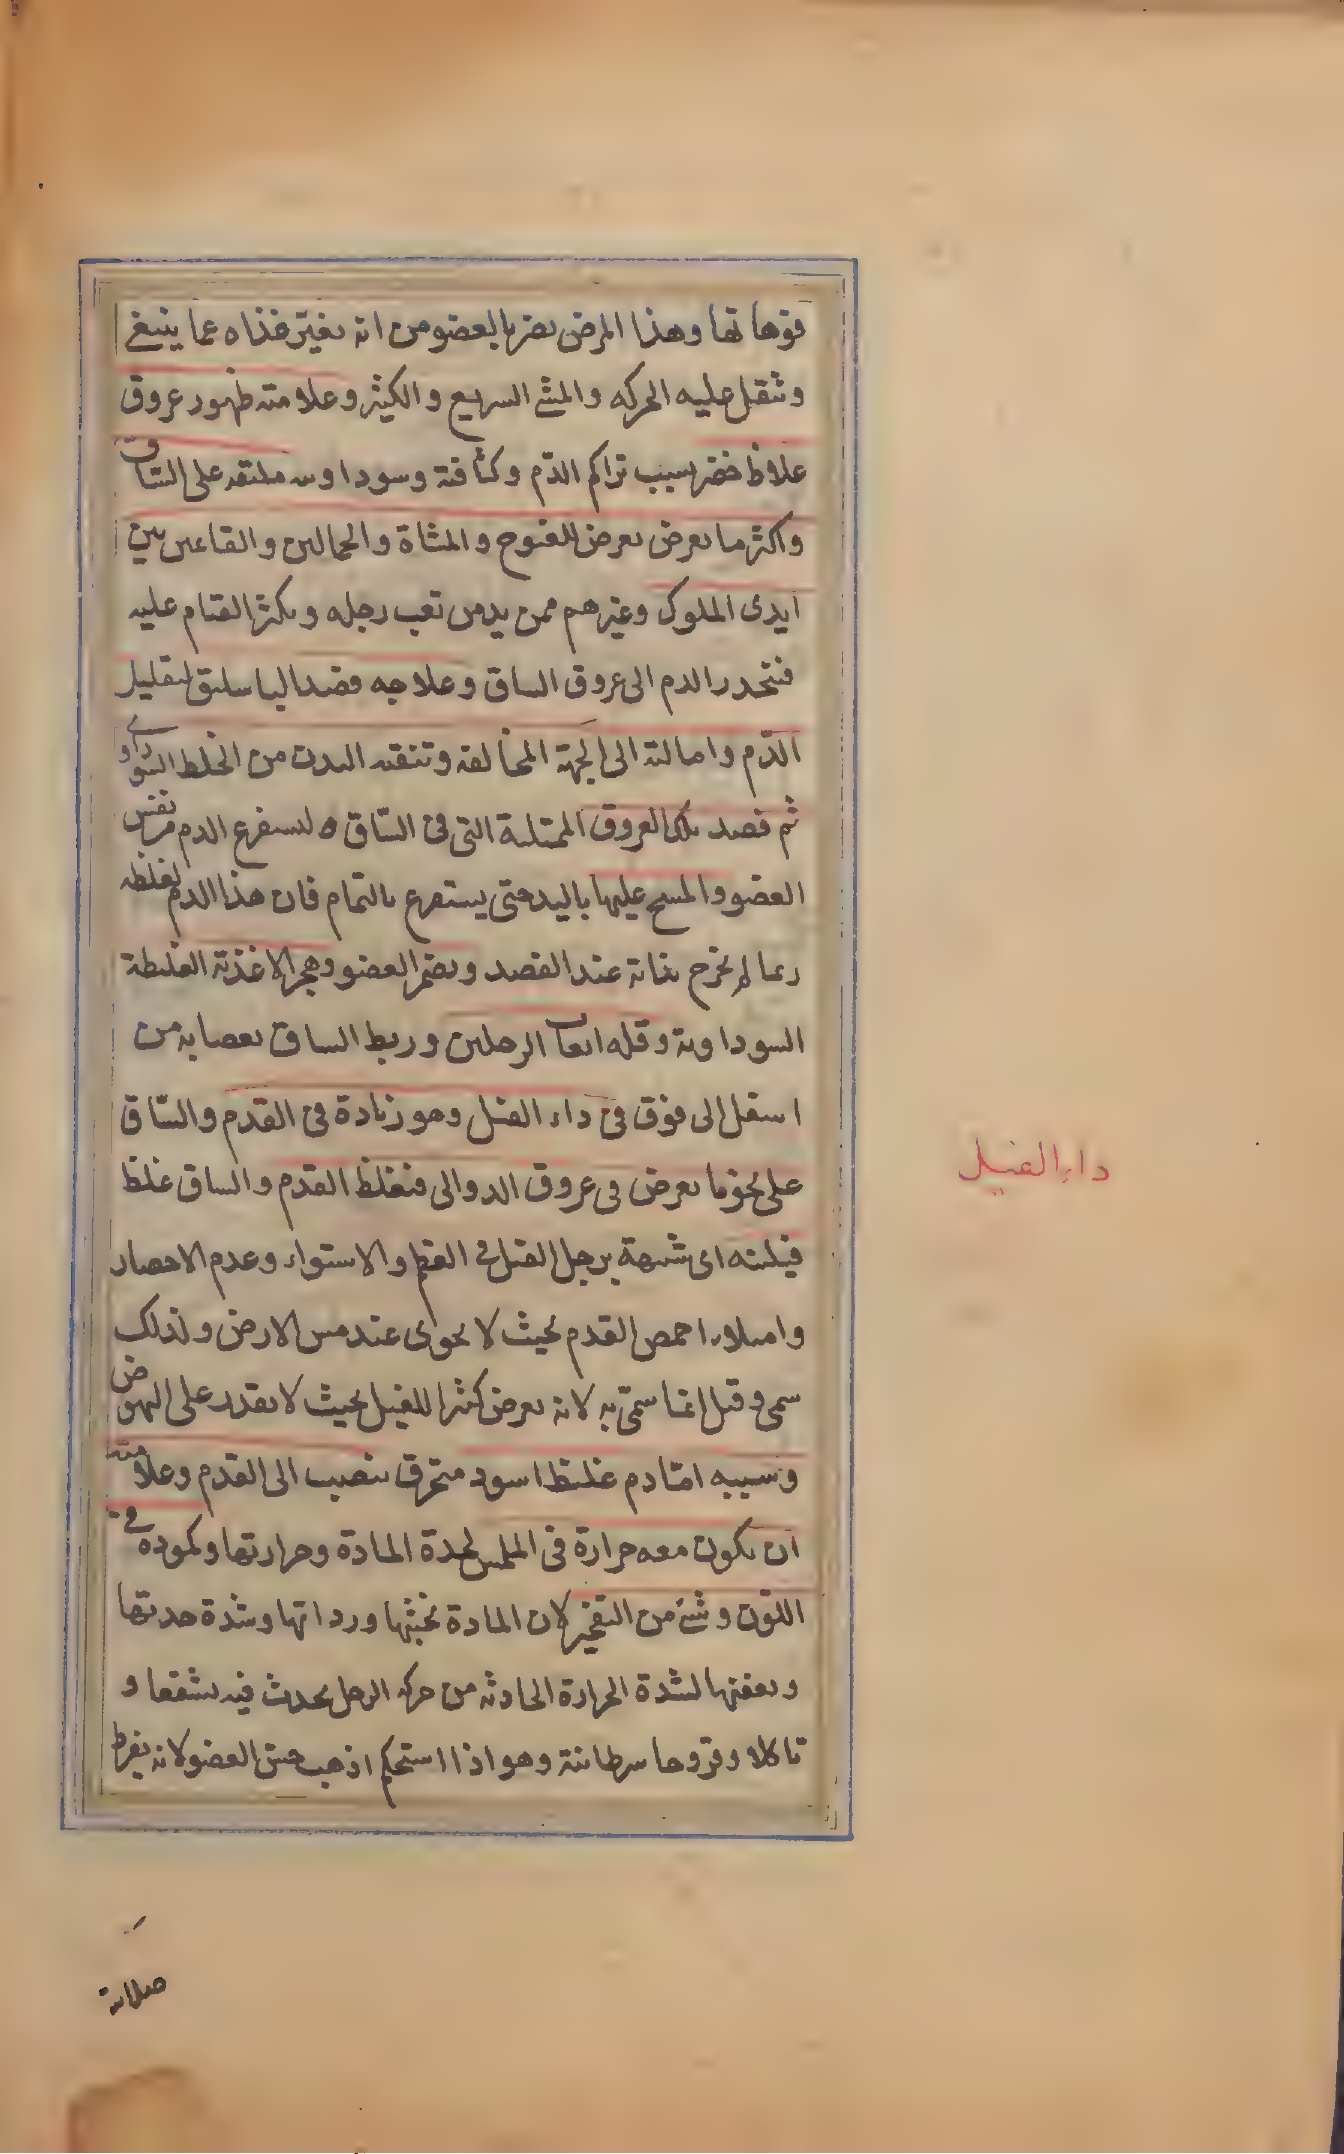 فوهاتها وهذا المرض يضر بالعضو من انه يغير غذاه عما ينبغي
وتثقل عليه الحركه والمشي السريع والكثير وعلامته ظهور عروق
غلاظ خضر لسبب تراكم الدّم وكثافته وسوداويه ملتفه على السّاق
واكثر ما يعرض يعرض للفيوج والمشاة والحمالين والقاعين بين
ايدى الملوك وغيرهم ممن يدمن تعب رجله ويكثر القيام عليه
فتنحدر الدم الى عروق الساق وعلاجه فصد الباسليق لتقليل
الدّم وامالته الى الجهة المخالفة وتنقيه البدن من الخلط السّوداوي
ثم فصد تلك العروق الممتلية التي في السّاق ليستفرغ الدم من نفس
العضو والمسح عليها باليد حتى يستفرغ بالتمام فان هذا الدم لغلظه
ربما لم يخرج بتمامه عند الفصد ويضر العضو وهجر الاغذية الغليظة
السوداوية وقله اتعاب الرجلين وربط الساق بعصابه من
اسفل الى فوق في داء الفيل وهو زيادة في القدم والسّاق
على نحو ما يعرض في عروق الدوالى فيغلظ القدم والساق غلظ
فيليته اى شبيهة برجل الفيل في العظم والاستواء وعدم الاحصار
وامتلاء اخمص القدم بحيث لا يحوى عند مس الارض ولذلك
سمى و قيل انما سمّى به لانه يعرض كثيرا للفيل بحيث لا يقدر على النهوض
وسببه امّا دم غليظ اسود محترق ينصب الى القدم وعلامته
ان يكون معه حرارة في الملمس لحدة المادة وحرارتها وكمودة في
اللّون وشئ من التفجير لان المادة بخبثها ورداتها وشدة حدتها
وتعفنها لشدة الحرارة الحادثه من حركه الرجل يحدث فيه تشققا و
تاكلا وقروحا سرطانية وهو اذا استحكم اذهب حس العضو لانه يفرط
داء الفيل
صلابته